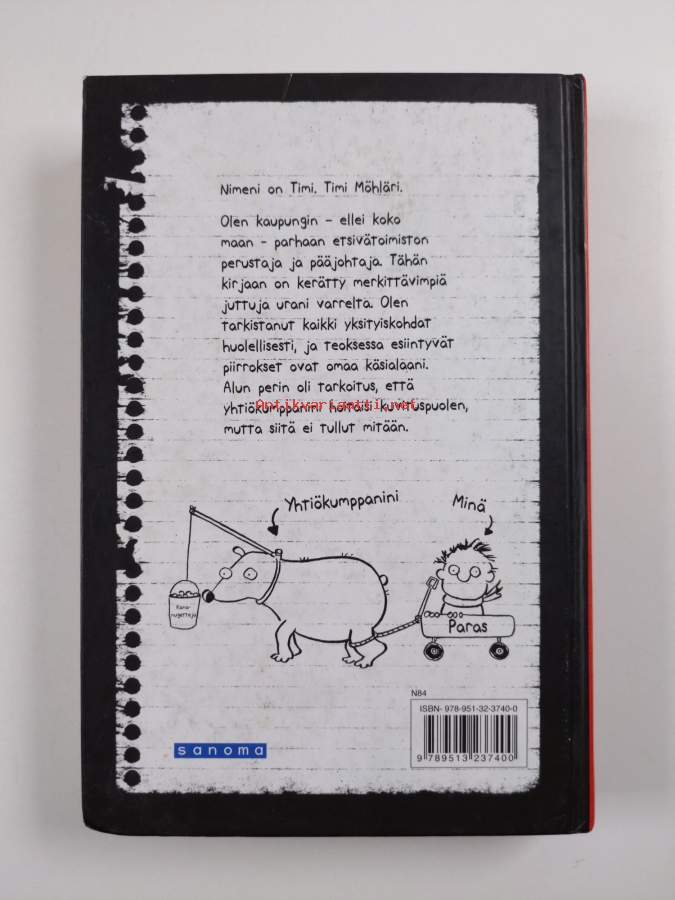 Nimeni on Timi. Timi Möhläri.
Olen kaupungin – ellei koko
maan – parhaan etsivätoimiston
perustaja ja pääjohtaja. Tähän
kirjaan on kerätty merkittävimpiä
juttuja urani varrelta. Olen
tarkistanut kaikki yksityiskohdat
huolellisesti, ja teoksessa esiintyvät
piirrokset ovat omaa käsialaani.
Alun perin oli tarkoitus, että
Antikvariaatti.net
yhtiökumppanini hoitaisi kuvituspuolen,
mutta siitä ei tullut mitään.
Yhtiökumppanini
Minä
Kana-
nugetteja
Paras
N84
ISBN- 978-951-32-3740-0
9 789513 237400
sanoma